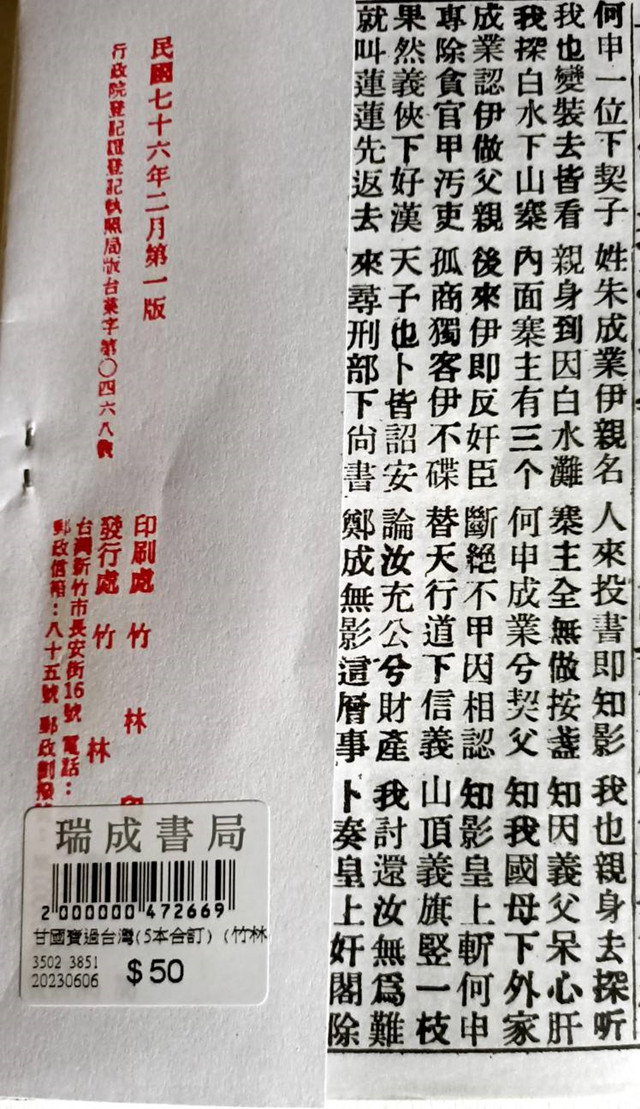 何申一位下契子 姓朱成業伊親名 人來投書即知影 我也親身去探听
我也變裝去皆看 親身到因白水灘 寨主全無做按盞 知因義父呆心肝
我探白水下山寨 內面寨主有三个 何申成業兮契父 知我國母下外家
成業認伊做父親 後來伊即反奸臣 斷絕不甲因相認 知影皇上斬何申
專除貪官甲污吏 孤商獨客伊不碟 替天行道下信義 山頂義旗竪一枝
果然義俠下好漢 天子也卜皆詔安 論汝充公兮財產 我討還汝無為難
就叫蓮蓮先返去 來尋刑部下尙書 鄭成無影這曆事 卜奏皇上奸閣除
民國七十六年二月第一版
行政院登記證登記執照局版台業字第〇四六八號
印刷處 竹 林
發行處 竹 林
台灣新竹市長安街16號 電話：
郵政信箱：八十五號 郵政劃撥
瑞成書局
2 000000 472669
甘國寶過台灣(5本合訂) (竹林
3502 3851
20230606
$50